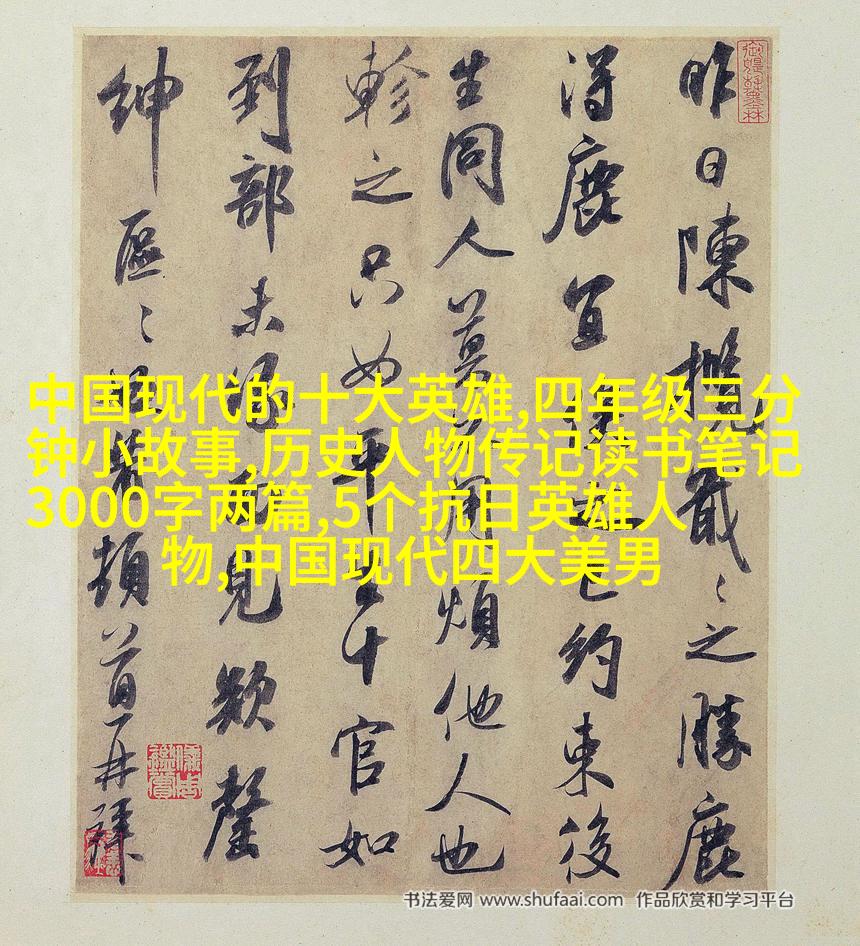 中国现代的十大英雄,四年级三分
钟小故事,历史人物传记读书笔记
3000字两篇,5个抗日英雄人
物,中国现代四大美男
昨日陳攬戢〻之勝鹿
得鹿宜 約束後
生同人莫 用煩他人也
軫之只如平生十官如
到部未 見欵罄
紳區〻 頓首再拜
书法爱网 www.shufaai.com 作品欣赏和学习平台